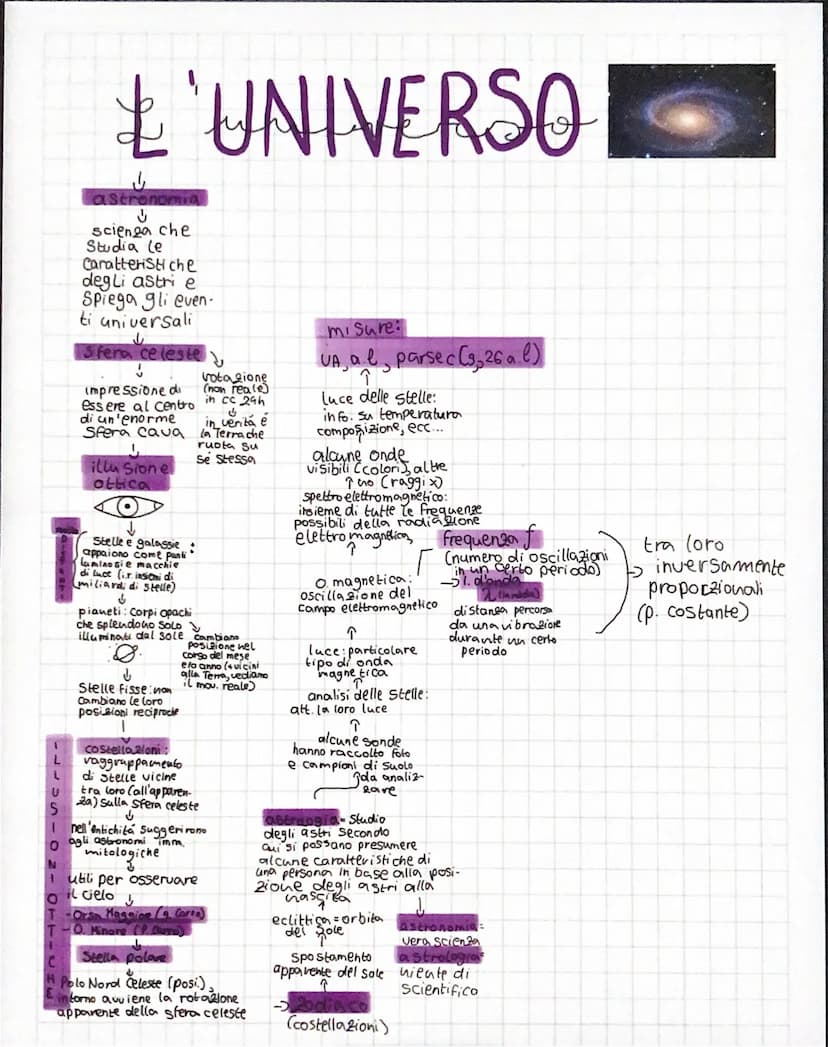 L'UNIVERSO
L'universo
astronomia
scienza che
studia le
caratteristiche
degli astri e
spiega gli even-
ti universali
sfera celeste
impressione di
essere al centro
di un'enorme
sfera cava
rotazione
(non reale)
in cc 24h
in verità è
la Terra che
ruota su
sé stessa
illusione
ottica
DISTANTI
Stelle e galassie
appaiono come punti
luminosi e macchie
di luce (i.r. insiemi di
miliardi di stelle)
pianeti: corpi opachi
che splendono solo
illuminati dal sole
cambiano
posizione nel
corso del mese
e/o anno (+ vicini
alla Terra, vediamo
il mov. reale)
Stelle fisse: non
cambiano le loro
posizioni reciproche
ILLUSIONI OTTICHE
costellazioni:
raggruppamento
di stelle vicine
tra loro (all'apparen-
za) sulla sfera celeste
nell'antichità suggerirono
agli astronomi imm.
mitologiche
utili per osservare
il cielo
- Orsa Maggiore (g. Carro)
- O. Minore (P. Carro)
Stella polare
Polo Nord Celeste (posi.),
intorno avviene la rotazione
apparente della sfera celeste
zodiaco
(costellazioni)
spostamento
apparente del sole
eclittica = orbita
del Sole
astrologia = studio
degli astri secondo
cui si possano presumere
alcune caratteristiche di
una persona in base alla posi-
zione degli astri alla
nascita
astronomia =
vera scienza
astrologia =
niente di
scientifico
alcune sonde
hanno raccolto foto
e campioni di suolo
da analiz-
zare
analisi delle stelle:
att. la loro luce
luce: particolare
tipo di onda
magnetica
o. magnetica:
oscillazione del
campo elettromagnetico
frequenza f
(numero di oscillazioni
in un certo periodo)
l. d'onda
λ (lambda)
distanza percorsa
da una vibrazione
durante un certo
periodo
tra loro
inversamente
proporzionali
(p. costante)
spettro elettromagnetico:
insieme di tutte le frequenze
possibili della radiazione
elettromagnetica,
alcune onde
visibili (colori), altre
no (raggi x)
luce delle stelle:
info. su temperatura
composizione, ecc...
misure:
UA, a.l, parsec (3,26 a.l)